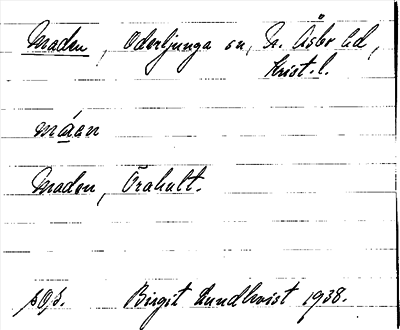 Maden, Oderljunga sn, N. Åsbo hd,
Krist. l.
måen
Maden, Örahult.
sgs. Birgit Lundkvist 1938.